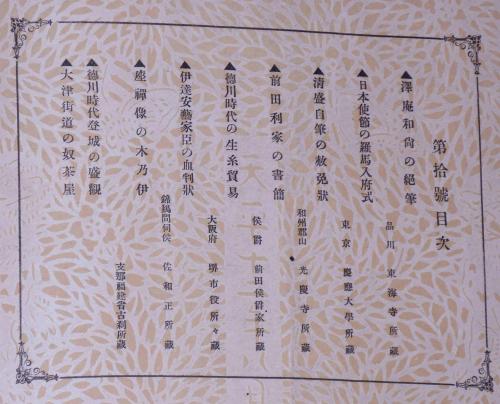 第拾號目次
▲澤庵和尙の絕筆
品川 東海寺所藏
▲日本使節の羅馬入府式
東京 慶應大學所藏
▲淸盛自筆の赦免狀
和州郡山 光慶寺所藏
▲前田利家の書簡
侯爵 前田侯爵家所藏
▲德川時代の生糸貿易
大阪府 堺市役所々藏
▲伊達安藝家臣の血判狀
錦鷄間伺侯 佐和正所藏
▲座禪像の木乃伊
支那福建省古刹所藏
▲德川時代登城の盛觀
▲大津街道の奴茶屋